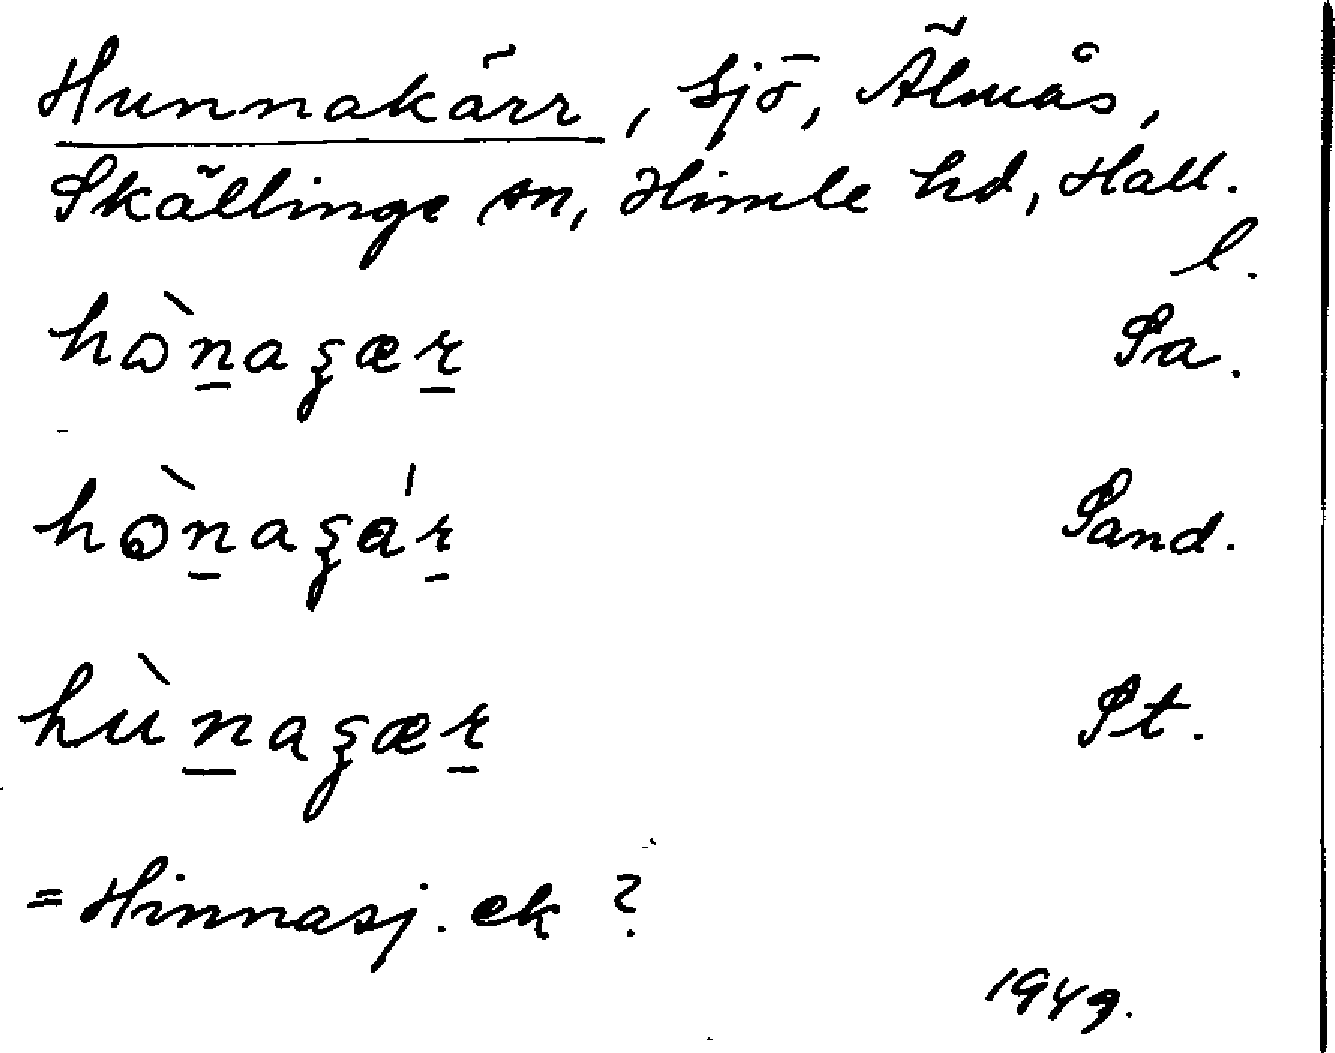 Hunnakärr, sjö, Älmås,
Skällinge sn, Himle hd, Hall.
l.
hὼn̲aʓær̲ Sa.
hὼn̲aʓár̲ Sand.
hùn̲aʓær̲ St.
= Hinnasj. ek ?
1949.